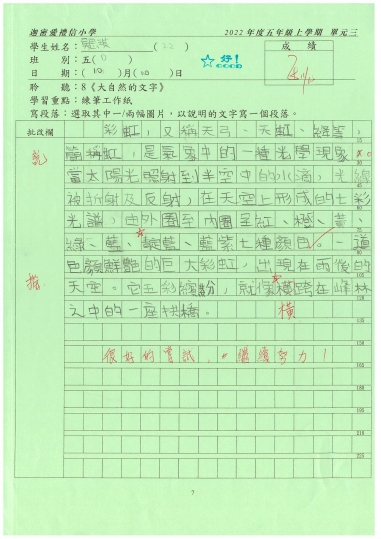 迦密愛禮信小學 2022 年度五年級上學期 單元三
學生姓名： (22) 成績
班 別：五( ) 好！
日 期：(10)月(10)日
聆 聽：8《大自然的文字》
學習重點：練筆工作紙
寫段落：選取其中一/兩幅圖片，以說明的文字寫一個段落。
批改欄
彩虹，又稱天弓、天虹、絳等，
簡稱虹，是氣象中的一種光學現象。
當太陽光照射到半空中的水滴，光線
被折射及反射，在天空上形成的七彩
光譜，由外圈至內圈呈紅、橙、黃、
綠、藍、靛藍、藍紫七種顏色。一道
色顏鮮艷的巨大彩虹，出現在雨後的
天空。它五彩繽紛，就像橫跨在峰林
之中的一座拱橋。
橫
很好的嘗試，繼續努力！
7